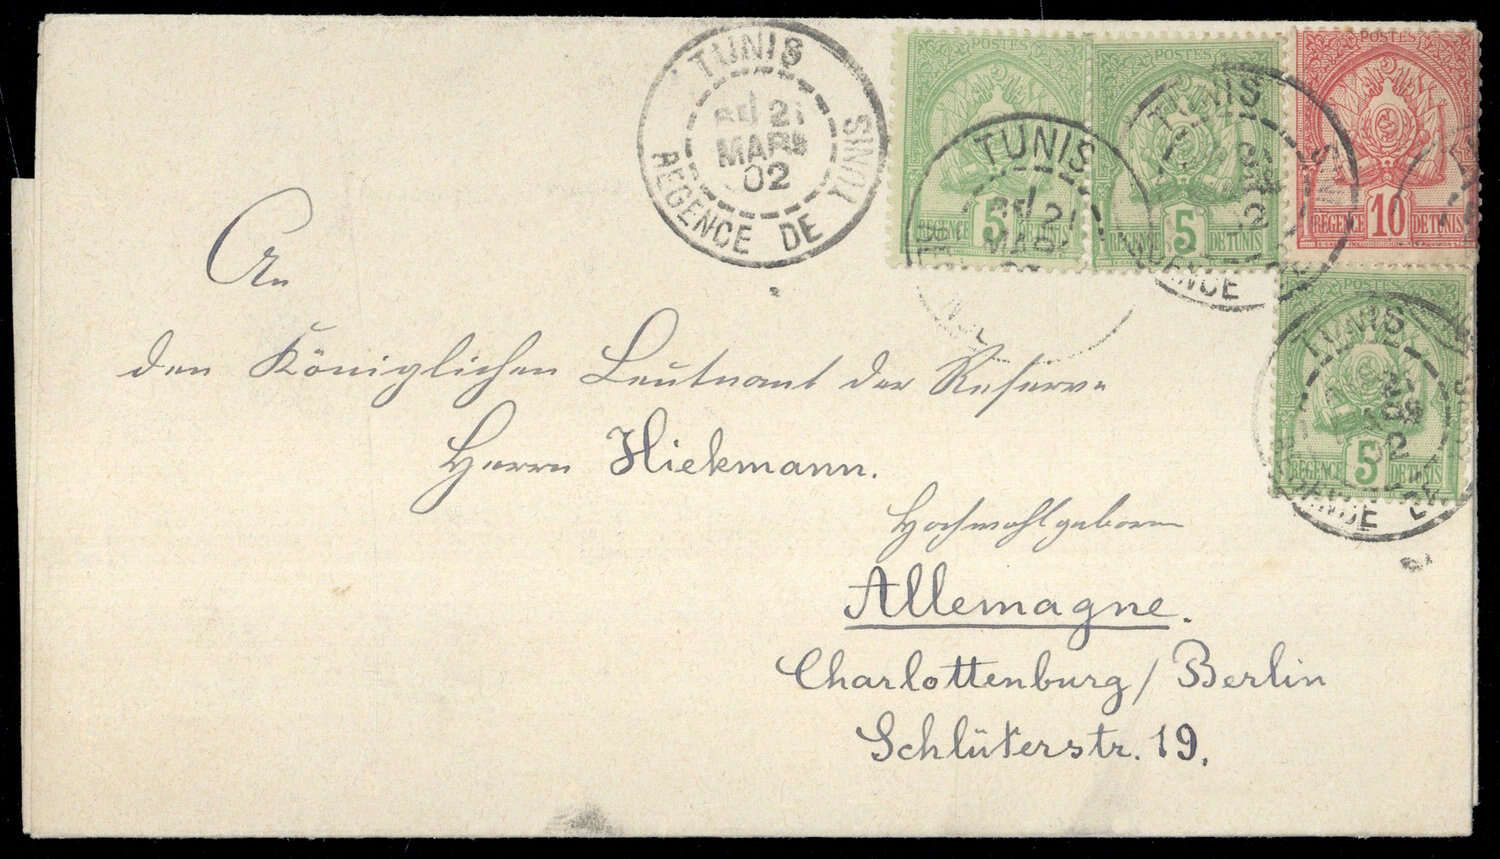 TUNIS
21
MARS
02
REGENCE DE TUNIS
POSTES
5
REGENCE DE TUNIS
POSTES
5
REGENCE DE TUNIS
POSTES
10
REGENCE DE TUNIS
TUNIS
TUNIS
POSTES
5
REGENCE DE TUNIS
TUNIS
An
den Königlichen Leutnant der Reserve
Herrn Hiekmann.
Hochwohlgeboren
Allemagne.
Charlottenburg/Berlin
Schlüterstr. 19.